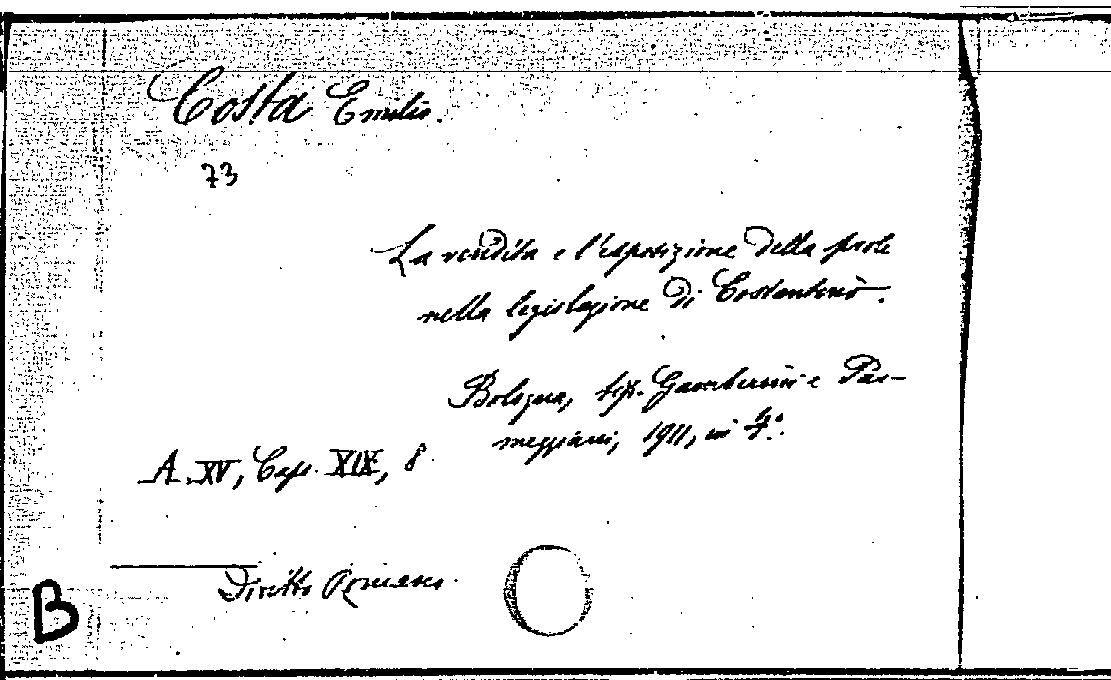 Costa Emilio.
73
La vendita e l'esposizione della prole
nella legislazione di Costantino.
Bologna, tip. Gamberini e Par-
meggiani, 1911, in 4°.
A. XV, Caps. XIX, 8
Diritto Romano.
B